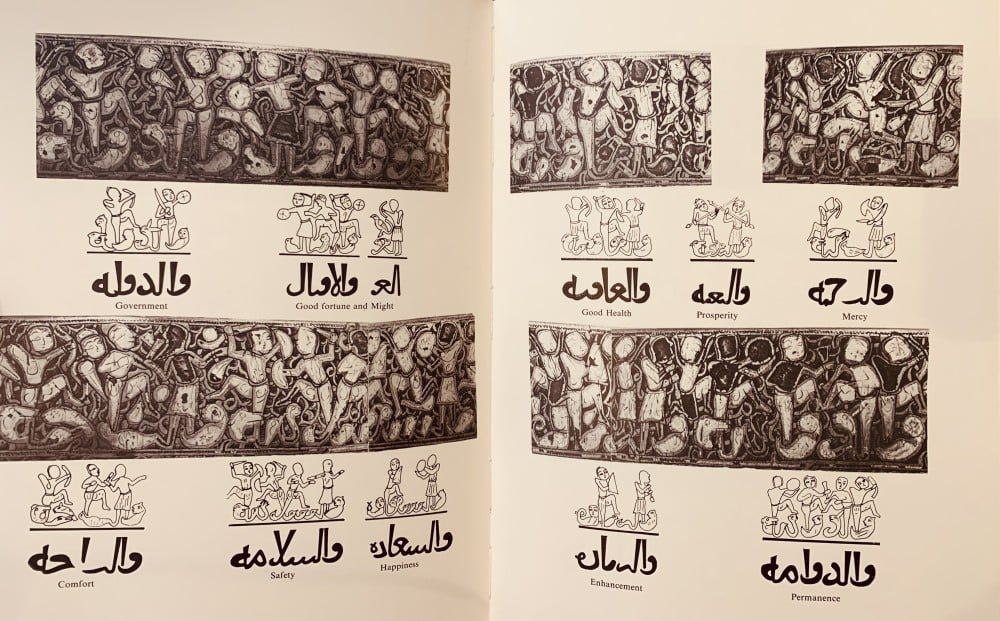 والدوله
Government
العز والاقبال
Good fortune and Might
والراحه
Comfort
والسلامه
Safety
والسعاده
Happiness
والعافيه
Good Health
Prosperity
والرحمه
Mercy
Enhancement
والدوامه
Permanence